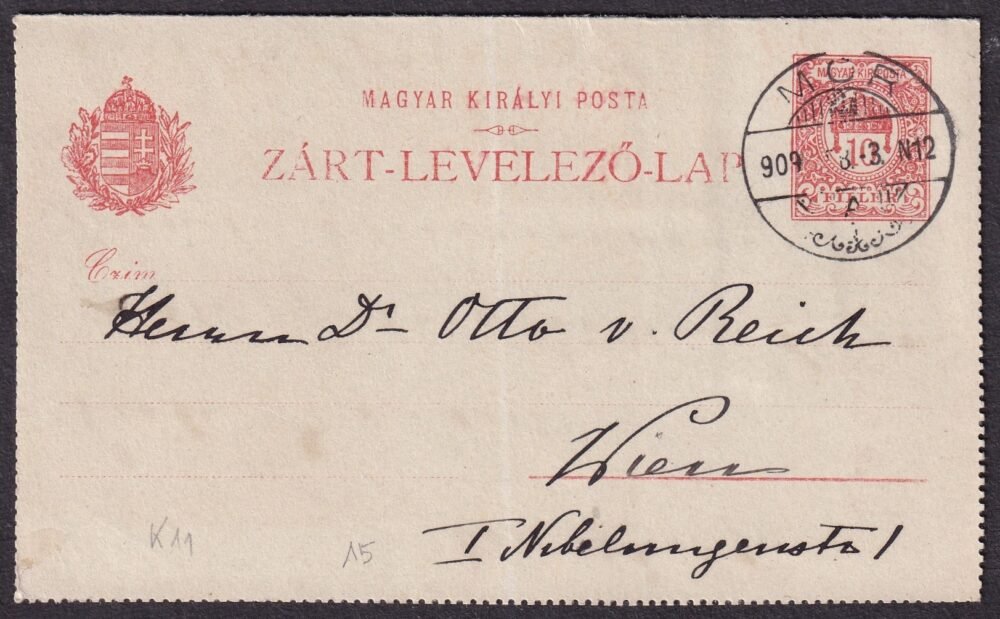 MAGYAR KIRÁLYI POSTA
ZÁRT-LEVELEZŐ-LAP
MAGYAR KIR. POSTA
10
FILLÉR
MÓR
909 8.-3. N12
A
Czim
Herrn Dr. Otto v. Reich
Wien
I Nibelungenstr 1
K11
15